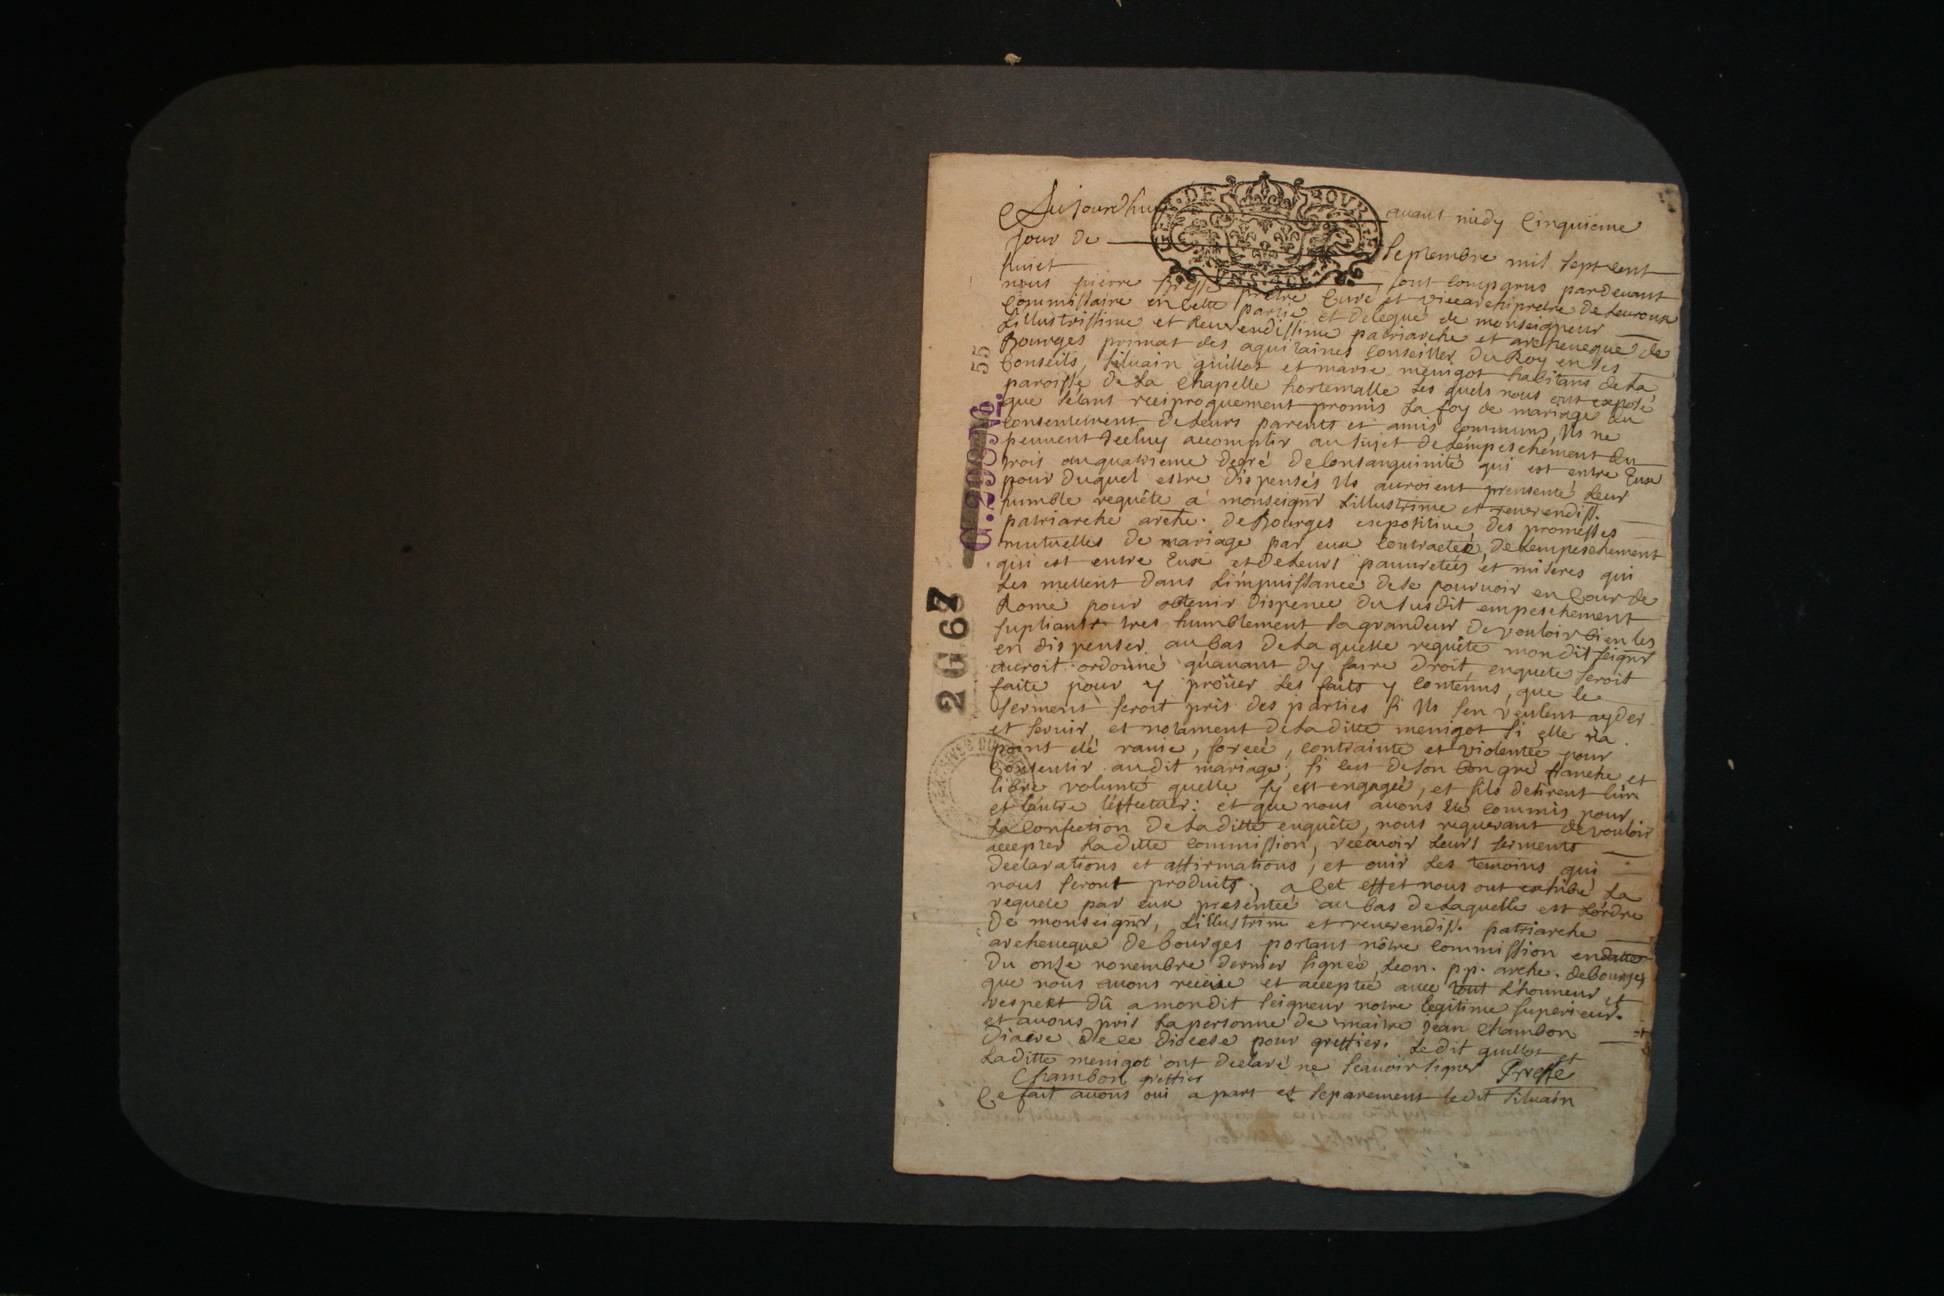 Aujourdhuy avant midy Cinquiéme
GEN. DE BOURGES
Jour de Septembre mil sept cent
huict sont comparus pardevant
nous pierre Presse prêtre Curé et vicearchiprêtre de Levroux
Commissaire en Cette partie et delegué de monseigneur
Lillustrissime et Reverendissime patriarche et archeveque de
Bourges primat des aquitaines Conseiller Du Roy en ses
Conseils, silvain guillot et marie menigot habitans de La
paroisse de La Chapelle hortemalle Les quels nous ont exposé
que setant reciproquement promis La foy de mariage du
Consentement de Leurs parents et amis communs, Ils ne
peuvent Icelluy accomplir au sujet de Lempeschement du
trois au quatrieme degré de Consanguinité qui est entre Eux
pour duquel estre dispensés Ils auroient presenté Leur
humble requête a monseignr Lillustrime et reverendiss.
patriarche arche. de Bourges expositive des promesses
mutuelles de mariage par eux Contractée, de Lempeschement
qui est entre Eux et de Leurs pauvretées et miseres qui
Les mettent dans Limpuissance de se pourvoir en Cour de
Rome pour obtenir dispence du susdit empeschement
supliants tres humblement sa grandeur de vouloir bien les
en dispenser. au bas de La quelle requête mondit seignr
auroit ordonné quavant dy faire droit enquete seroit
faite pour y proüer Les faits y contenus, que le
serment seroit pris des parties si Ils sen veulent ayder
et servir, et notament de La ditte menigot si elle na
point eté ravie, forcée, contrainte et violentée pour
Consentir audit mariage, si cest de son bon gré franche et
libre volunté quelle sy est engagée, et sils desirent lun
et lautre leffectuer: et que nous avons ete commis pour
La Confection de La ditte enquête, nous requerant de vouloir
accepter La ditte Commission, recevoir Leurs serments
declarations et affirmations, et ouir Les temoins qui
nous seront produits, a Cet effet nous ont exhibé La
requete par eux presentée au bas de Laquelle est Lordre
De monseignr, Lillustrim et reverendiss. patriarche
archeveque de bourges portant nôtre Commission en datte
du onze novembre dernier signée Leon. pp. arche. de bourges
que nous avons recüe et acceptée avec tout Lhonneur et
respect dû a mondit seigneur notre legitime superieur.
et avons pris La personne de maitre Jean Chambon
diacre de ce diocese pour greffier. Le dit guillot et
La ditte menigot ont declaré ne scavoir signer Presse
Chambon greffier
Ce fait avons oui a part et separement Ledit silvain
55
G.298 N6.
2 G 667